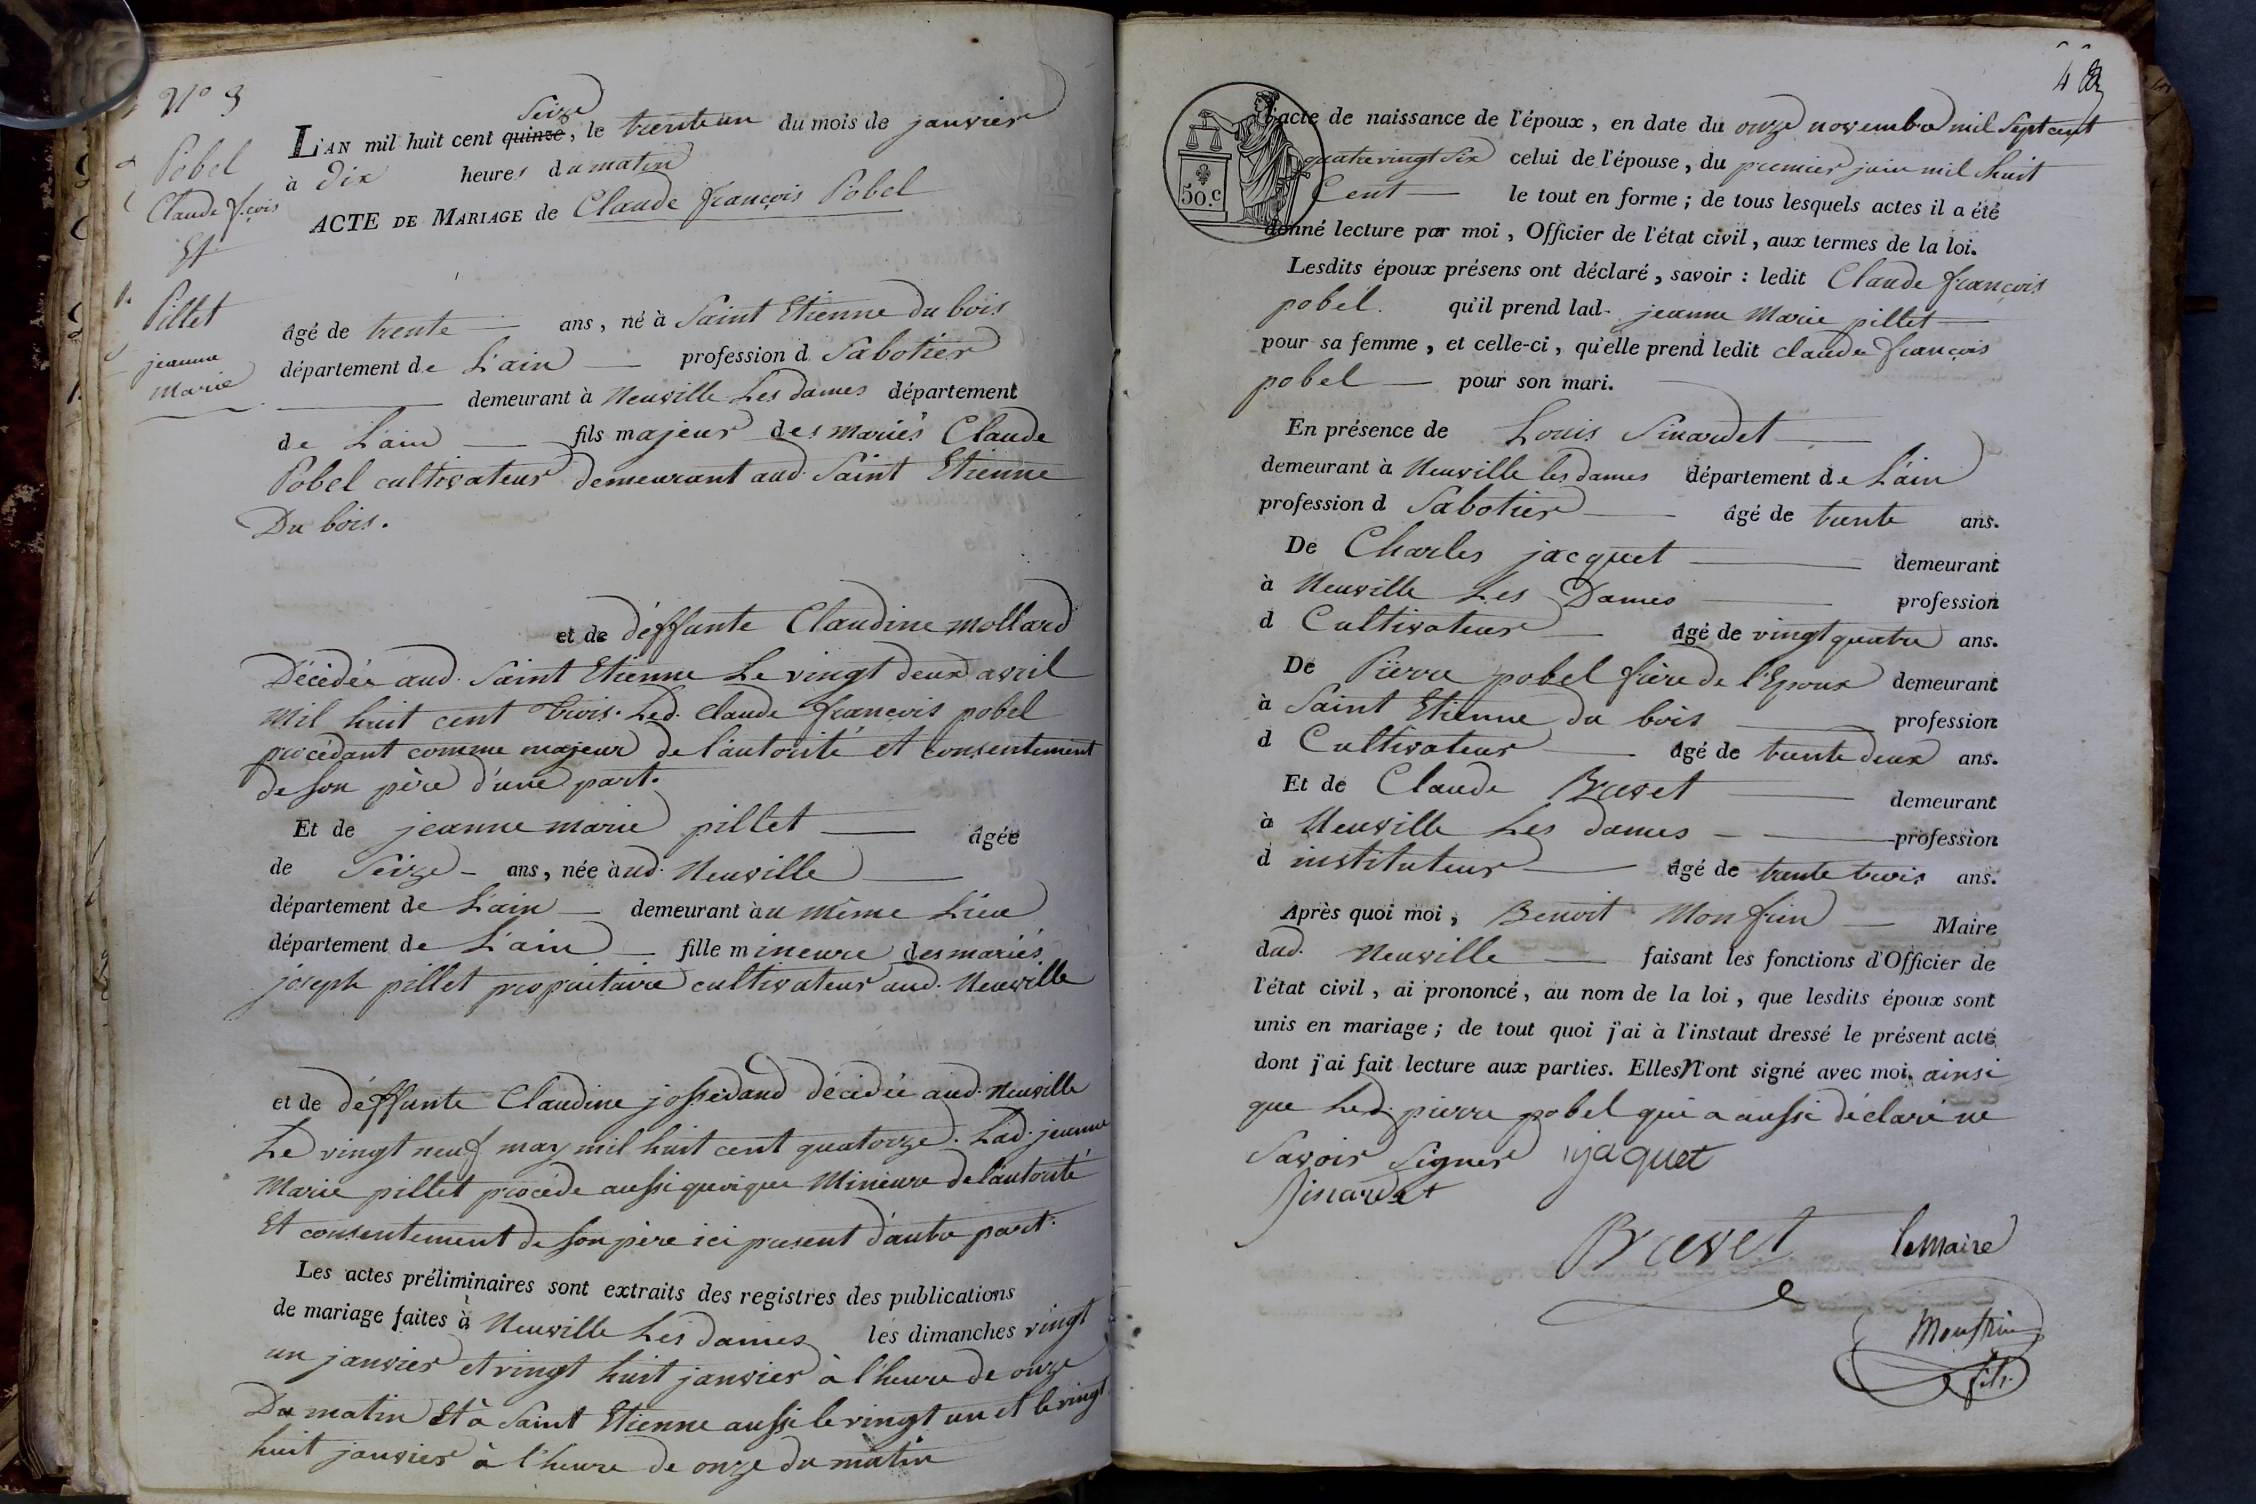 N° 3
Pobel
Claude f.çois
Et
Pillet
jeanne
Marie
Seize
L'AN mil huit cent quinze, le trente un du mois de janvier
à dix heures du matin
ACTE DE MARIAGE de Claude françois Pobel
âgé de trente ans, né à Saint Etienne du bois
département de L'ain profession d Sabotier
demeurant à Neuville Les dames département
de L'ain fils majeur des mariés Claude
Pobel cultivateur demeurant aud. Saint Etienne
Du bois.
et de déffunte Claudine mollard
Décédée aud. Saint Etienne Le vingt deux avril
mil huit cent trois. Led. Claude françois pobel
procédant comme majeur de l'autorité et consentement
de son père d'une part.
Et de jeanne marie pillet âgée
de Seize ans, née àud. Neuville
département de L'ain demeurant àu même Lieu
département de L'ain fille mineure des mariés
joseph pillet propriétaire cultivateur aud. Neuville
et de déffunte Claudine josserand décédée aud. Neuville
Le vingt neuf may mil huit cent quatorze. Lad. jeanne
Marie pillet procède aussi quoique Mineure de l'autorité
Et consentement de son père ici present d'autre part.
Les actes préliminaires sont extraits des registres des publications
de mariage faites à Neuville Les dames les dimanches vingt
un janvier et vingt huit janvier à l'heure de onze
Du matin Et à Saint Etienne aussi le vingt un et le vingt
huit janvier à l'heure de onze du matin
48
50.c
l'acte de naissance de l'époux, en date du onze novembre mil Sept cent
quatre vingt Six celui de l'épouse, du premier juin mil huit
Cent le tout en forme; de tous lesquels actes il a été
donné lecture par moi, Officier de l'état civil, aux termes de la loi.
Lesdits époux présens ont déclaré, savoir: ledit Claude françois
pobel. qu'il prend lad. jeanne Marie pillet
pour sa femme, et celle-ci, qu'elle prend ledit claude françois
pobel pour son mari.
En présence de Louis Sinardet
demeurant à Neuville les dames département de L'ain
profession d Sabotier âgé de trente ans.
De Charles jacquet demeurant
à Neuville Les Dames profession
d Cultivateur âgé de vingt quatre ans.
De Pierre pobel frère de l'Epoux demeurant
à Saint Etienne du bois profession
d Cultivateur âgé de trente deux ans.
Et de Claude Brevet demeurant
à Neuville Les dames profession
d instituteur âgé de trente trois ans.
Après quoi moi, Benoit Monfrin Maire
dud. Neuville faisant les fonctions d'Officier de
l'état civil, ai prononcé, au nom de la loi, que lesdits époux sont
unis en mariage; de tout quoi j'ai à l'instaut dressé le présent acte
dont j'ai fait lecture aux parties. Elles N'ont signé avec moi, ainsi
que Led. pierre pobel qui a aussi déclaré ne
Savoir Signer jaquet
Sinardet
Brevet le Maire
Monfrin
fils